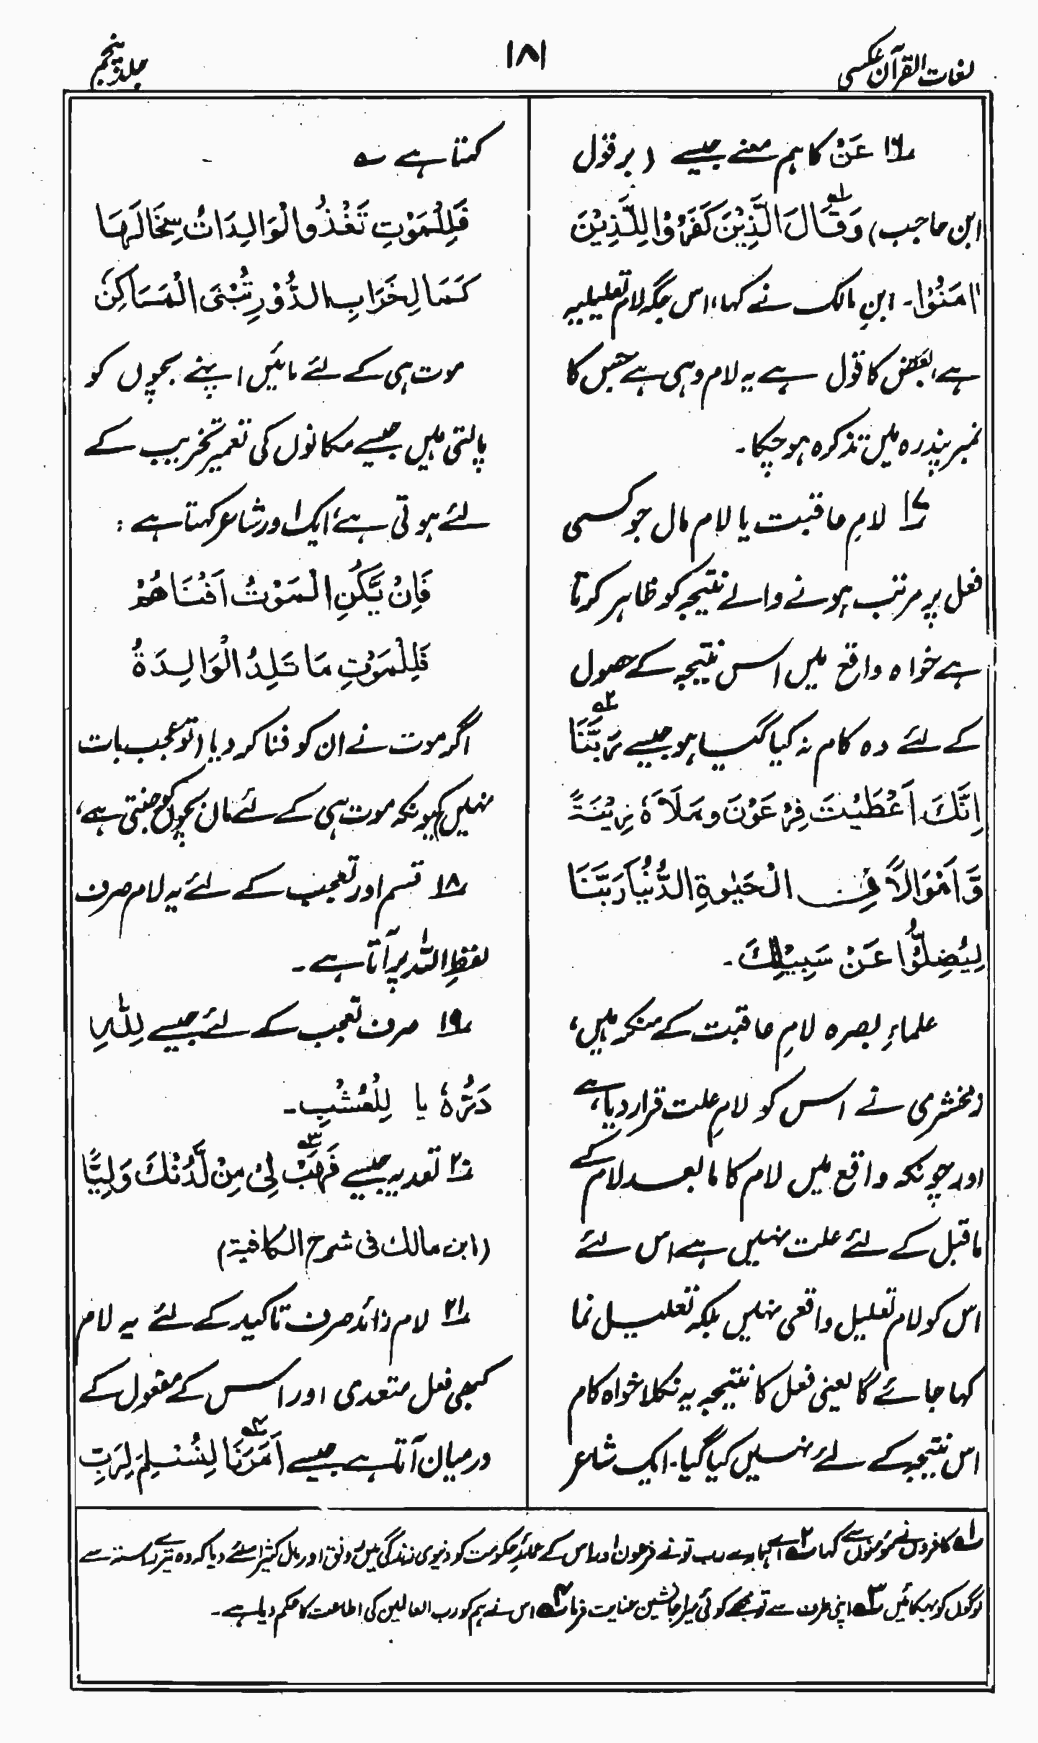 لغات القرآن عکسی
۱۸۱
جلد پنجم
۱۶ عَنْ کا ہم معنے جیسے (بر قول
ابن حاجب) وَقَالَ الَّذِيْنَ كَفَرُوْا لِلَّذِيْنَ
اٰمَنُوْا۔ ابن مالک نے کہا، اس جگہ لام تعلیلیہ
ہے، بعض کا قول ہے یہ لام وہی ہے جس کا
نمبر پندرہ میں تذکرہ ہو چکا۔
۱۷ لامِ عاقبت یا لام مال جو کسی
فعل پر مرتب ہونے والے نتیجہ کو ظاہر کرتا
ہے خواہ واقع میں اس نتیجہ کے حصول
کے لئے وہ کام نہ کیا گیا ہو جیسے رَبَّنَا
اِنَّكَ اَعْطَيْتَ فِرْعَوْنَ وَمَلَاَهٗ زِيْنَةً
وَّاَمْوَالًا فِي الْحَيٰوةِ الدُّنْيَا رَبَّنَا
لِيُضِلُّوْا عَنْ سَبِيْلِكَ۔
علماءِ بصرہ لامِ عاقبت کے منکر ہیں،
زمخشری نے اس کو لامِ علت قرار دیا ہے،
اور چونکہ واقع میں لام کا مابعد لام کے
ماقبل کے لئے علت نہیں ہے اس لئے
اس کو لام تعلیل واقعی نہیں بلکہ تعلیل نما
کہا جائے گا یعنی فعل کا نتیجہ یہ نکلا خواہ کام
اس نتیجہ کے لئے نہیں کیا گیا۔ ایک شاعر
کہتا ہے ؎
فَلِلْمَوْتِ تَغْذُوا الْوَالِدَاتُ سِخَالَهَا
كَمَا لِخَرَابِ الدُّوْرِ تُبْنَى الْمَسَاكِنُ
موت ہی کے لئے مائیں اپنے بچوں کو
پالتی ہیں جیسے مکانوں کی تعمیر تخریب کے
لئے ہوتی ہے، ایک اور شاعر کہتا ہے :
فَاِنْ يَّكُنِ الْمَوْتُ اَفْنَاهُمْ
فَلِلْمَوْتِ مَا تَلِدُ الْوَالِدَةُ
اگر موت نے ان کو فنا کر دیا (تو عجب بات
نہیں) کیونکہ موت ہی کے لئے ماں بچوں کو جنتی ہے،
۱۸ قسم اور تعجب کے لئے یہ لام صرف
لفظِ اللہ پر آتا ہے۔
۱۹ صرف تعجب کے لئے جیسے لِلّٰهِ
دَرُّهٗ یا لِلْعُشْبِ۔
۲۰ تعدیہ جیسے فَهَبْ لِيْ مِنْ لَّدُنْكَ وَلِيًّا
(ابن مالک فی شرح الکافیۃ)
۲۱ لام زائد صرف تاکید کے لئے یہ لام
کبھی فعل متعدی اور اس کے مفعول کے
درمیان آتا ہے جیسے اُمِرْنَا لِنُسْلِمَ لِرَبِّ
۱؎ کافروں نے مومنوں سے کہا ۲؎ اے ہمارے رب تو نے فرعون اور اس کے عمائدِ حکومت کو دنیوی زندگی میں رونق اور مال کثیر اسلئے دیا کہ وہ تیرے راستہ سے
لوگوں کو بہکائیں ۳؎ اپنی طرف سے تو مجھے کوئی میرا جانشین عنایت فرما ۴؎ اس نے ہم کو رب العالمین کی اطاعت کا حکم دیا ہے۔